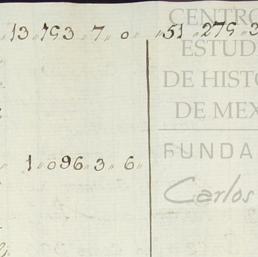 13„793„7„0„ „51„279„3
1„096„3„6„
CENTRO
ESTUD
DE HISTO
DE MEX
FUNDA
Carlos